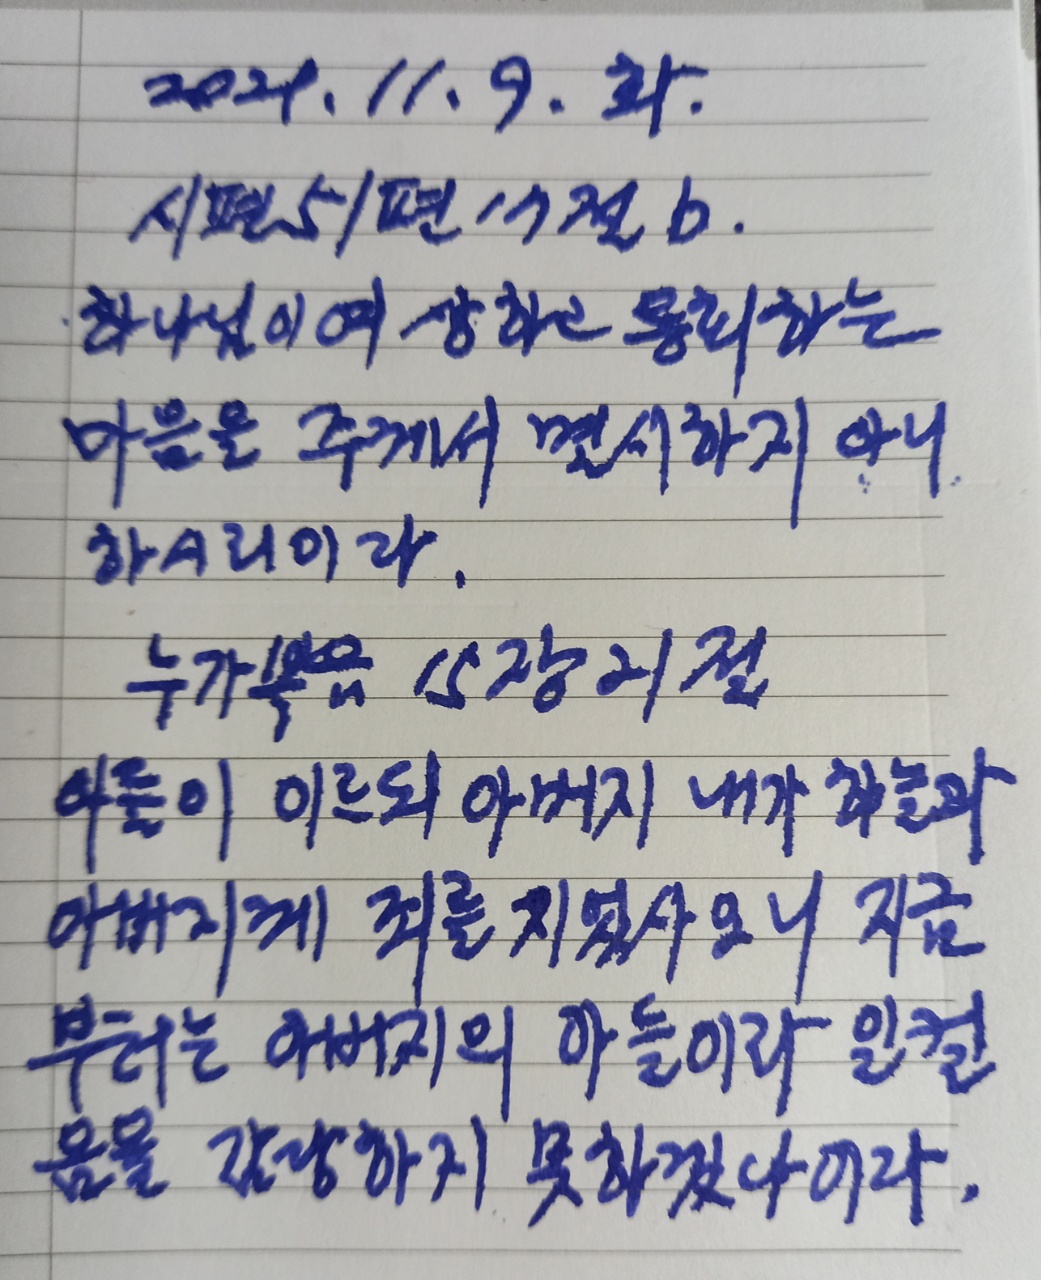 2021. 11. 9. 화.
시편 51편 17절 b.
하나님이여 상하고 통회하는
마음을 주께서 멸시하지 아니
하시리이다.
누가복음 15장 21절
아들이 이르되 아버지 내가 하늘과
아버지께 죄를 지었사오니 지금
부터는 아버지의 아들이라 일컬
음을 감당하지 못하겠나이다.